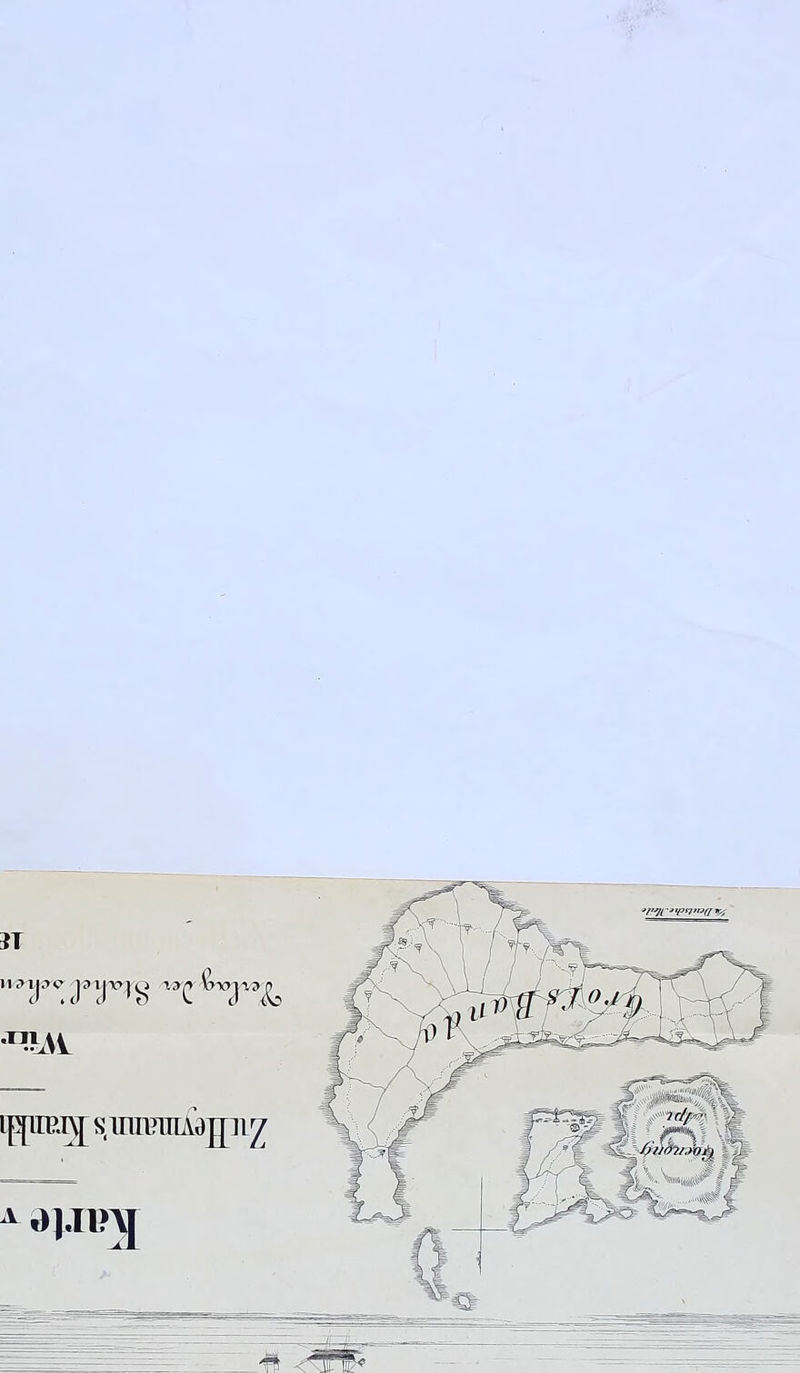 Karte v
Zu Heymann's Krankh
Wür
Verlag der Stahel'schen
18
Goenong
Api
Grofs Banda
Deutsche Meile